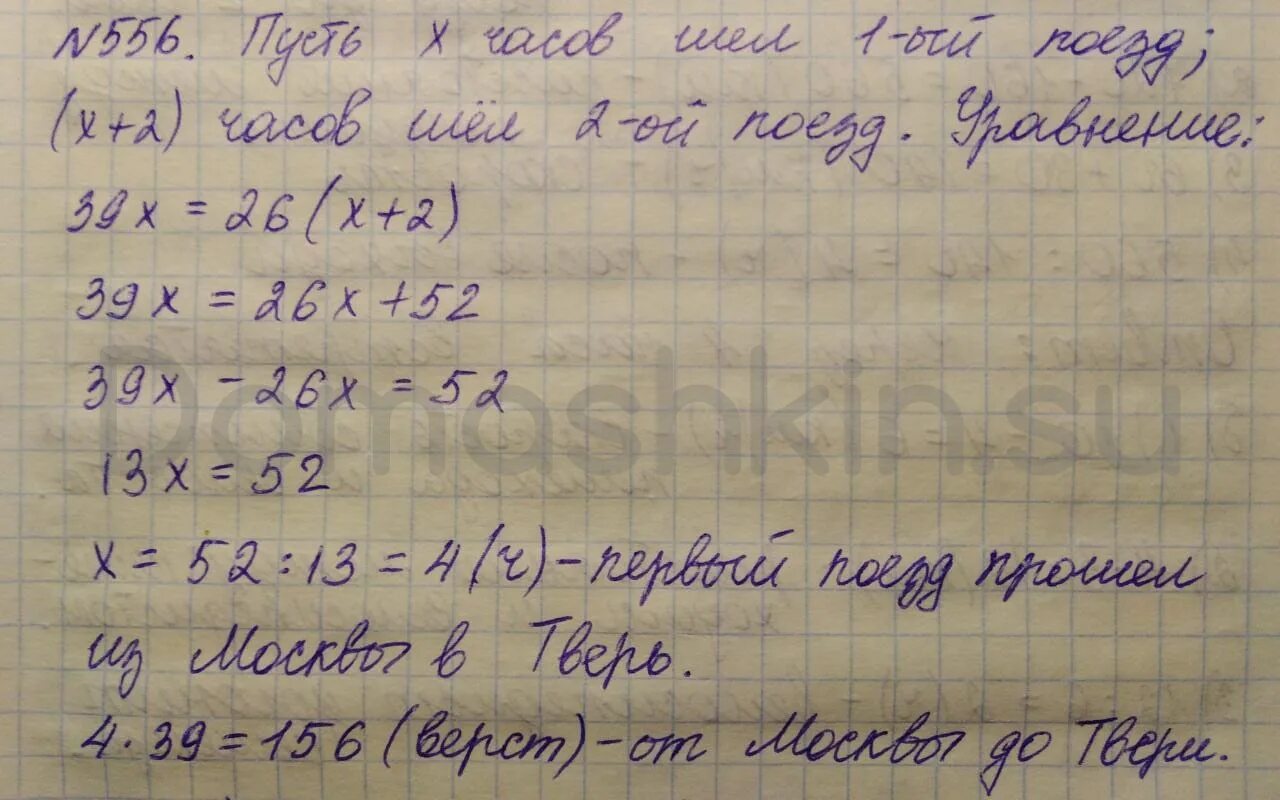 N556. Пусть х часов шел 1-ый поезд;
(х+2) часов шёл 2-ой поезд. Уравнение:
39х = 26(х+2)
39х = 26х+52
39х - 26х = 52
Domashkin.su
13х = 52
х = 52:13 = 4(ч) - первый поезд прошел
из Москвы в Тверь.
4·39=156 (верст) - от Москвы до Твери.